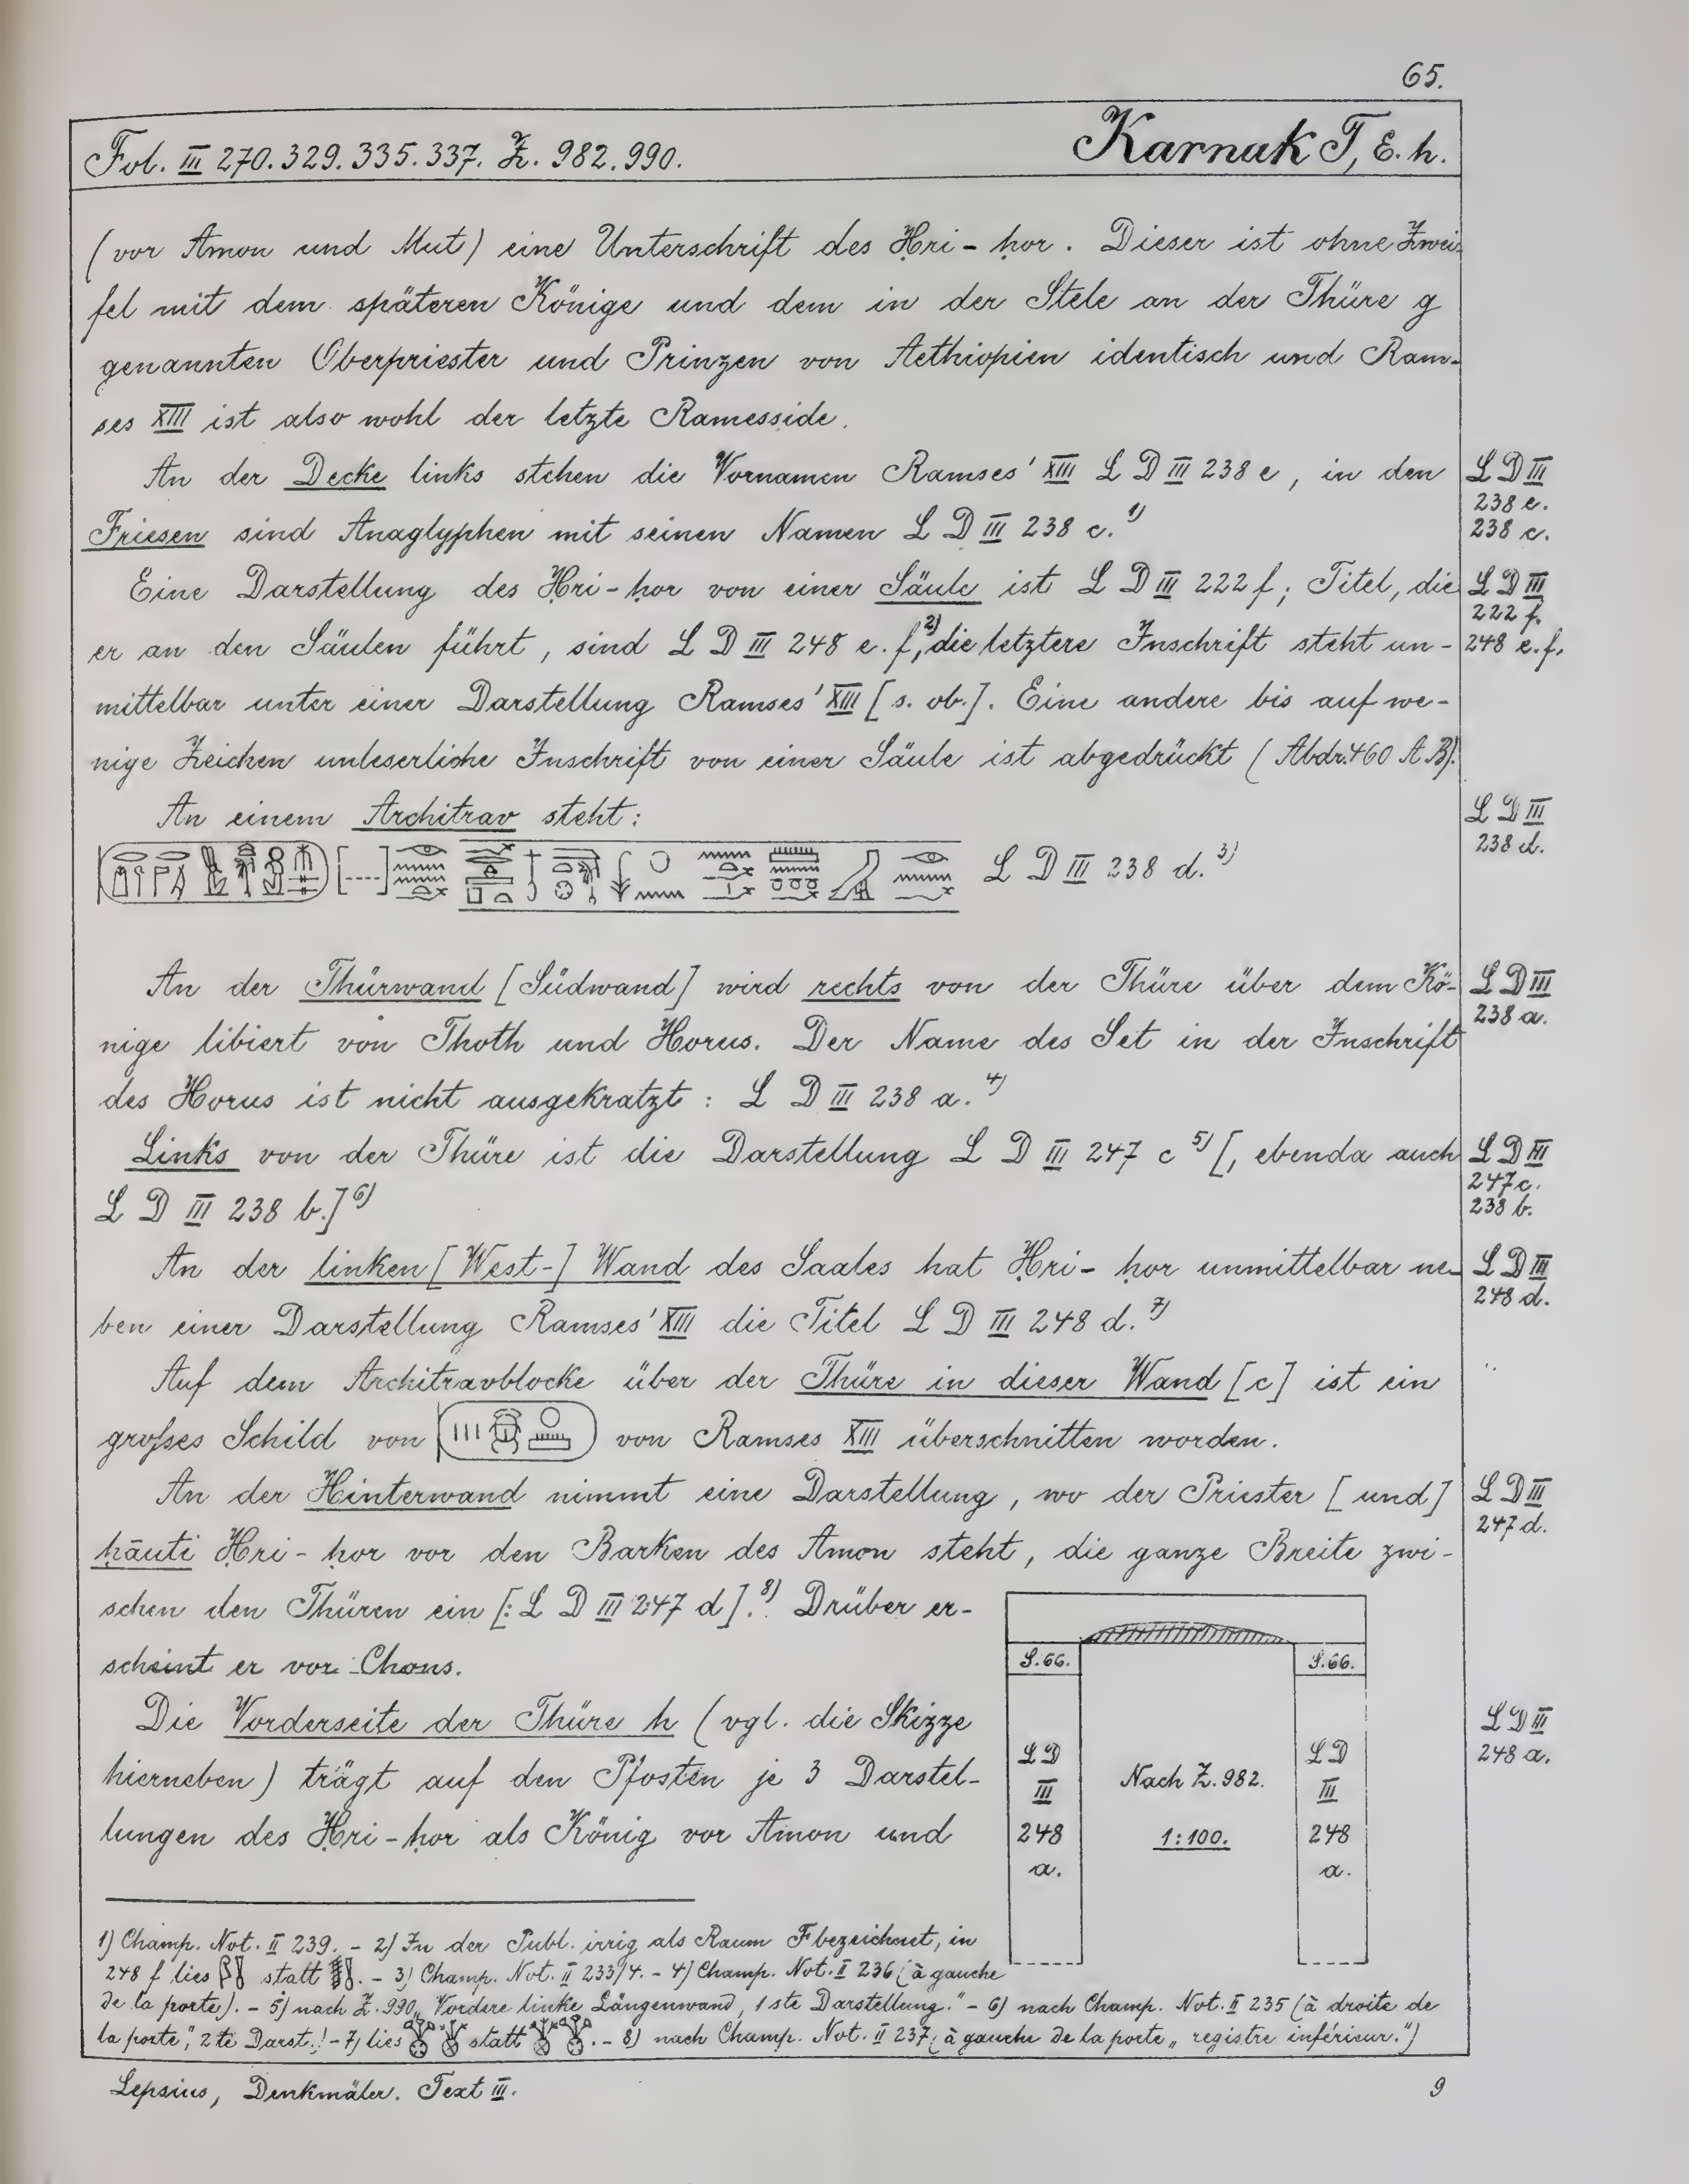 65.
Fol. III 270.329.335.337. Z. 982.990.
Karnak T, E. h.
(vor Amon und Mut) eine Unterschrift des Ḥri-ḥor. Dieser ist ohne Zwei-
fel mit dem späteren Könige und dem in der Stele an der Thüre g
genannten Oberpriester und Prinzen von Aethiopien identisch und Ram-
ses XIII ist also wohl der letzte Ramesside.
An der Decke links stehen die Vornamen Ramses' XIII L D III 238 e, in den
L D III
238 e.
Friesen sind Anaglyphen mit seinen Namen L D III 238 c. 1)
238 c.
Eine Darstellung des Ḥri-ḥor von einer Säule ist L D III 222 f; Titel, die
L D III
222 f.
er an den Säulen führt, sind L D III 248 e. f, 2) die letztere Inschrift steht un-
248 e. f.
mittelbar unter einer Darstellung Ramses' XIII [s. ob.]. Eine andere bis auf we-
nige Zeichen unleserliche Inschrift von einer Säule ist abgedrückt (Abdr. 460 A B).
An einem Architrav steht:
L D III
238 d.
[----] L D III 238 d. 3)
An der Thürwand [Südwand] wird rechts von der Thüre über dem Kö-
L D III
238 a.
nige libiert von Thoth und Horus. Der Name des Set in der Inschrift
des Horus ist nicht ausgekratzt: L D III 238 a. 4)
Links von der Thüre ist die Darstellung L D III 247 c 5) [, ebenda auch
L D III
247 c.
238 b.
L D III 238 b.] 6)
An der linken [West-] Wand des Saales hat Ḥri-ḥor unmittelbar ne-
L D III
248 d.
ben einer Darstellung Ramses' XIII die Titel L D III 248 d. 7)
Auf dem Architravblocke über der Thüre in dieser Wand [c] ist ein
großes Schild von von Ramses XIII überschnitten worden.
An der Hinterwand nimmt eine Darstellung, wo der Priester [und]
L D III
247 d.
ḥāuti Ḥri-ḥor vor den Barken des Amon steht, die ganze Breite zwi-
schen den Thüren ein [: L D III 247 d]. 8) Drüber er-
scheint er vor Chons.
Die Vorderseite der Thüre h (vgl. die Skizze
L D III
248 a.
hierneben) trägt auf den Pfosten je 3 Darstel-
lungen des Ḥri-ḥor als König vor Amon und
S. 66.
S. 66.
L D
III
248
a.
Nach Z. 982.
1:100.
L D
III
248
a.
1) Champ. Not. II 239. - 2) In der Publ. irrig als Raum F bezeichnet, in
248 f lies statt . - 3) Champ. Not. II 233/4. - 4) Champ. Not. II 236 (à gauche
de la porte). - 5) nach Z. 990 „Vordere linke Längenwand, 1ste Darstellung." - 6) nach Champ. Not. II 235 (à droite de
la porte", 2te Darst.! - 7) lies statt . - 8) nach Champ. Not. II 237 (à gauche de la porte „registre inférieur.")
Lepsius, Denkmäler. Text III.
9